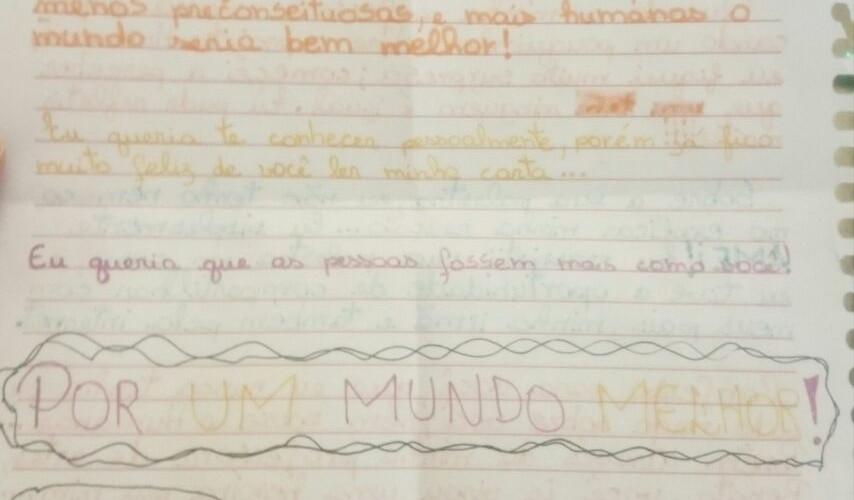 menos preconseituosas, e mais humanas o
mundo seria bem melhor!
Eu queria te conhecer pessoalmente, porém já fico
muito feliz de você ler minha carta...
Eu queria que as pessoas fossem mais como você!
POR UM MUNDO MELHOR!